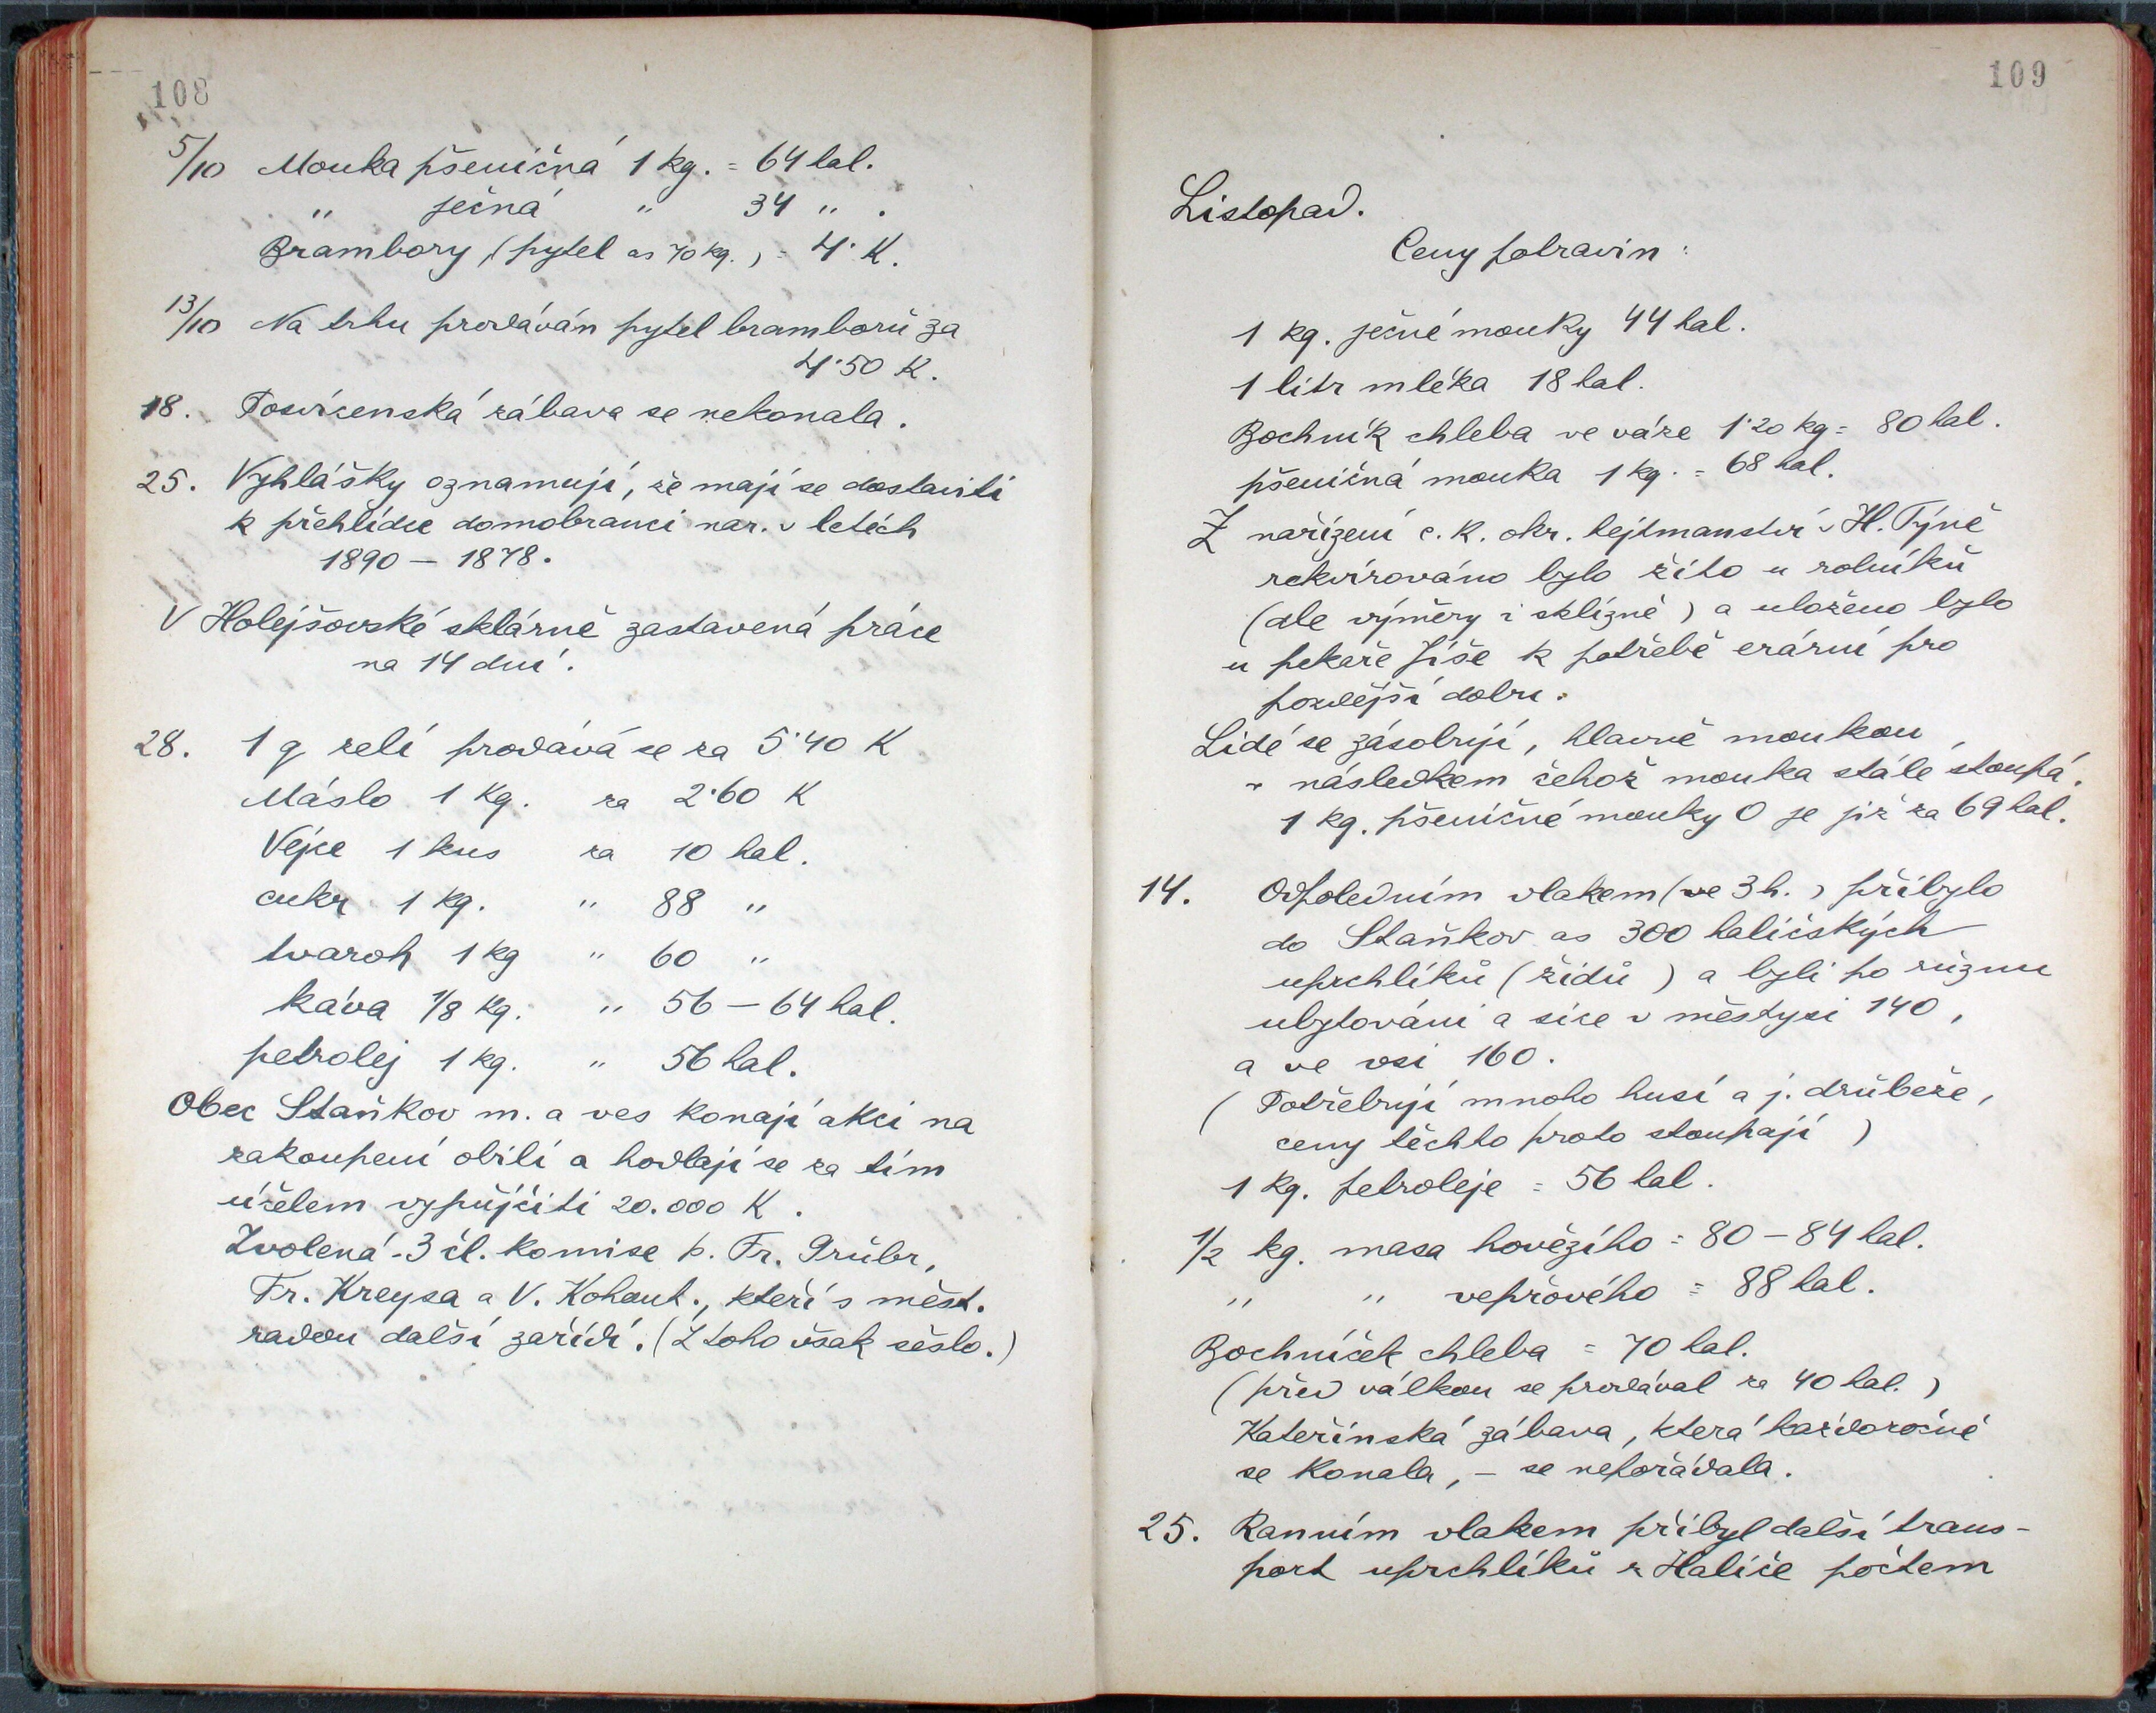 108
5/10 Mouka pšeničná 1 kg. = 64 hal.
" ječná " 34 " .
Brambory (pytel as 70 kg.) = 4· K.
13/10 Na trhu prodáván pytel bramborů za
4·50 K.
18. Posvícenská zábava se nekonala.
25. Vyhlášky oznamují, že mají se dostaviti
k přehlídce domobranci nar. v letech
1890 – 1878.
V Holejšovské sklárně zastavená práce
na 14 dní.
28. 1 q zelí prodává se za 5·40 K
Máslo 1 kg. za 2·60 K
Vejce 1 kus za 10 hal.
cukr 1 kg. " 88 "
tvaroh 1 kg " 60 "
káva 1/8 kg. " 56 – 64 hal.
petrolej 1 kg. " 56 hal.
Obec Staňkov m. a ves konají akci na
zakoupení obilí a hodlají se za tím
účelem vypůjčiti 20.000 K.
Zvolená 3 čl. komise p. Fr. Grübr,
Fr. Kreysa a V. Kohout., kteří s měst.
radou další zařídí. (Z toho však sešlo.)
109
Listopad.
Ceny potravin:
1 kg. ječné mouky 44 hal.
1 litr mléka 18 hal.
Bochník chleba ve váze 1·20 kg = 80 hal.
pšeničná mouka 1 kg. = 68 hal.
Z nařízení c. k. okr. hejtmanství v H. Týně
rekvírováno bylo žito u rolníků
(dle výměry i sklizně) a uloženo bylo
u pekaře Jíše k potřebě erární pro
pozdější dobu.
Lidé se zásobují, hlavně moukou,
v následkem čehož mouka stále stoupá.
1 kg. pšeničné mouky 0 je již za 69 hal.
14. Odpoledním vlakem (ve 3 h.) přibylo
do Staňkov as 300 haličských
uprchlíků (židů) a byli po různu
ubytováni a sice v městysi 140,
a ve vsi 160.
(Potřebují mnoho husí a j. drůbeže,
ceny těchto proto stoupají)
1 kg. petroleje = 56 hal.
1/2 kg. masa hovězího = 80 – 84 hal.
" " vepřového = 88 hal.
Bochníček chleba = 70 hal.
(před válkou se prodával za 40 hal.)
Kateřinská zábava, která každoročně
se konala, – se nepořádala.
25. Ranním vlakem přibyl další trans-
port uprchlíků z Haliče počtem